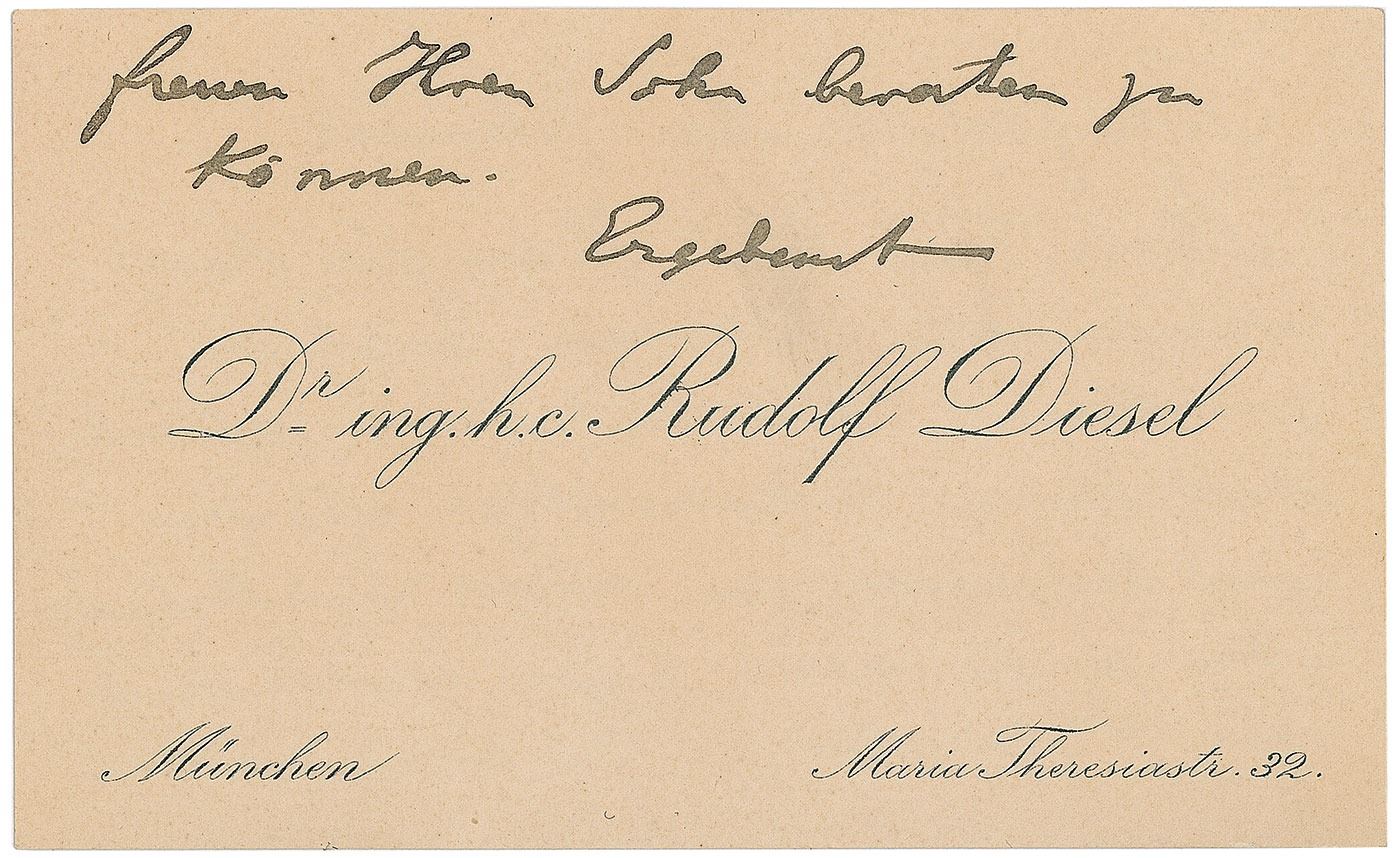 freuen Ihren Sohn beraten zu
können.
Ergebenst
Dr ing. h. c. Rudolf Diesel
München
Maria Theresiastr. 32.